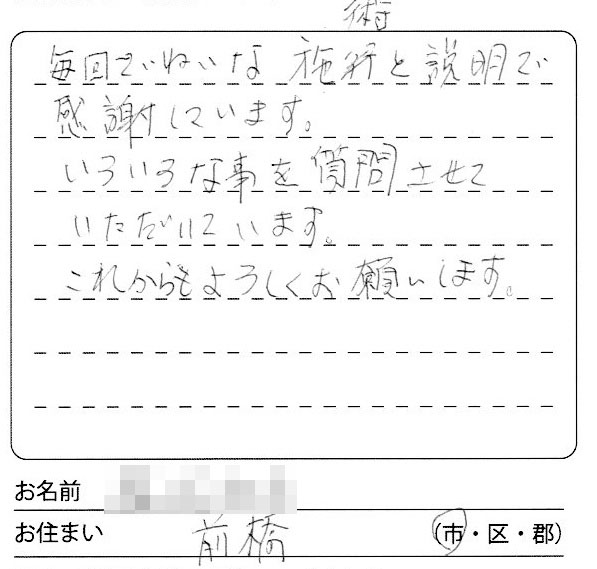 術
毎回ていねいな施術と説明で
感謝しています。
いろいろな事を質問させて
いただいています。
これからもよろしくお願いします。
お名前
お住まい 前橋 (市・区・郡)